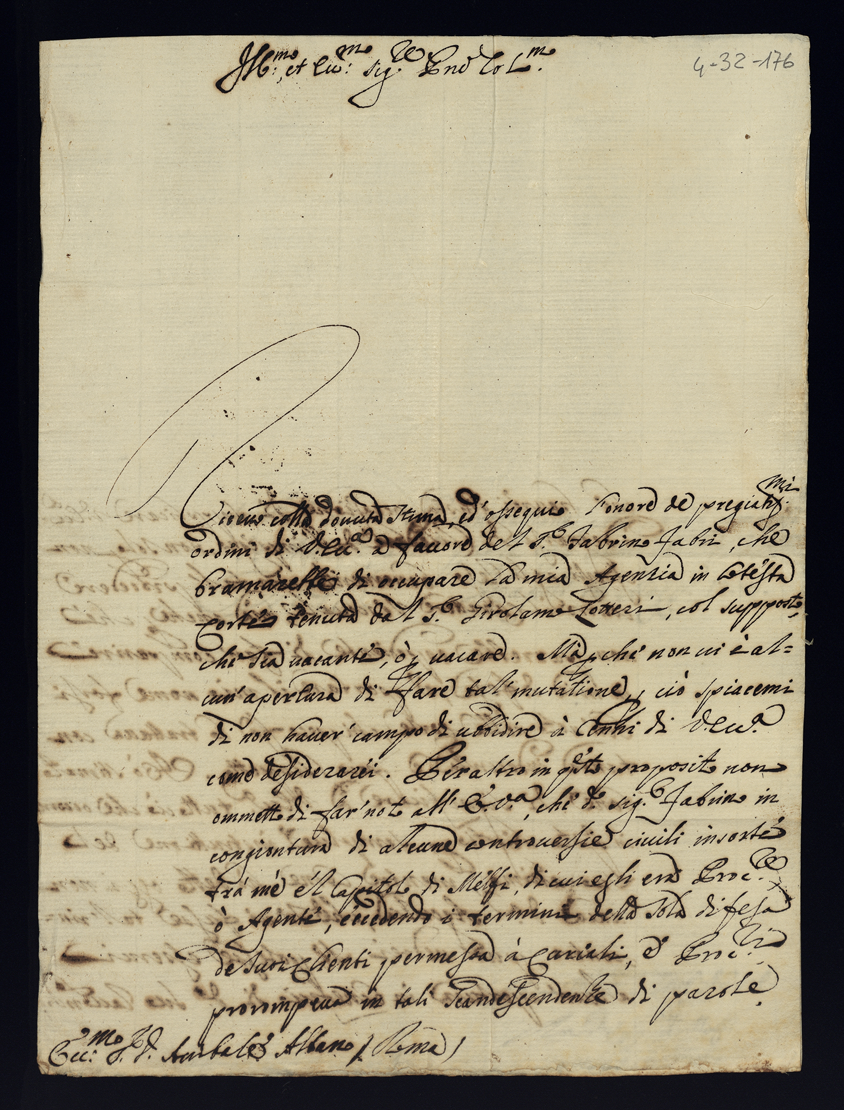 Ill:mo et Ecc:mo Sig:re Pne Col:mo
4-32-176
Ricevo colla dovuta stima, ed' ossequio l'onore de pregiatis:mi
ordini di V.Ecc:a a favore del S.r Fabrino Fabri, che
bramarebbe di occupare la mia Agenzia in cotesta
Corte tenuta dal S.r Girolamo Lotteri, col supposto,
che sia vacante, ò p vacare. Mà p che non vi è al=
cun' apertura di fare tal' mutatione, ciò spiacemi
di non haver' campo di ubbidire à Cenni di V.Ecc:a
come desiderarei. Per altro in q.sto proposito non
ometto di far' noto all' E.V.a, che d.o Sig.r Fabrino in
congiontura di alcune controversie civili insorte
trà me è l Capitolo di Melfi, di cui egli era Proc.re
ò Agente, eccedendo i termini della sola difesa
de suoi Clienti permessa à Causali, è Proc.ri
prorompeva in tali scandescendenze di parole
Ecc:mo S.D. Annibale Albano / Roma /